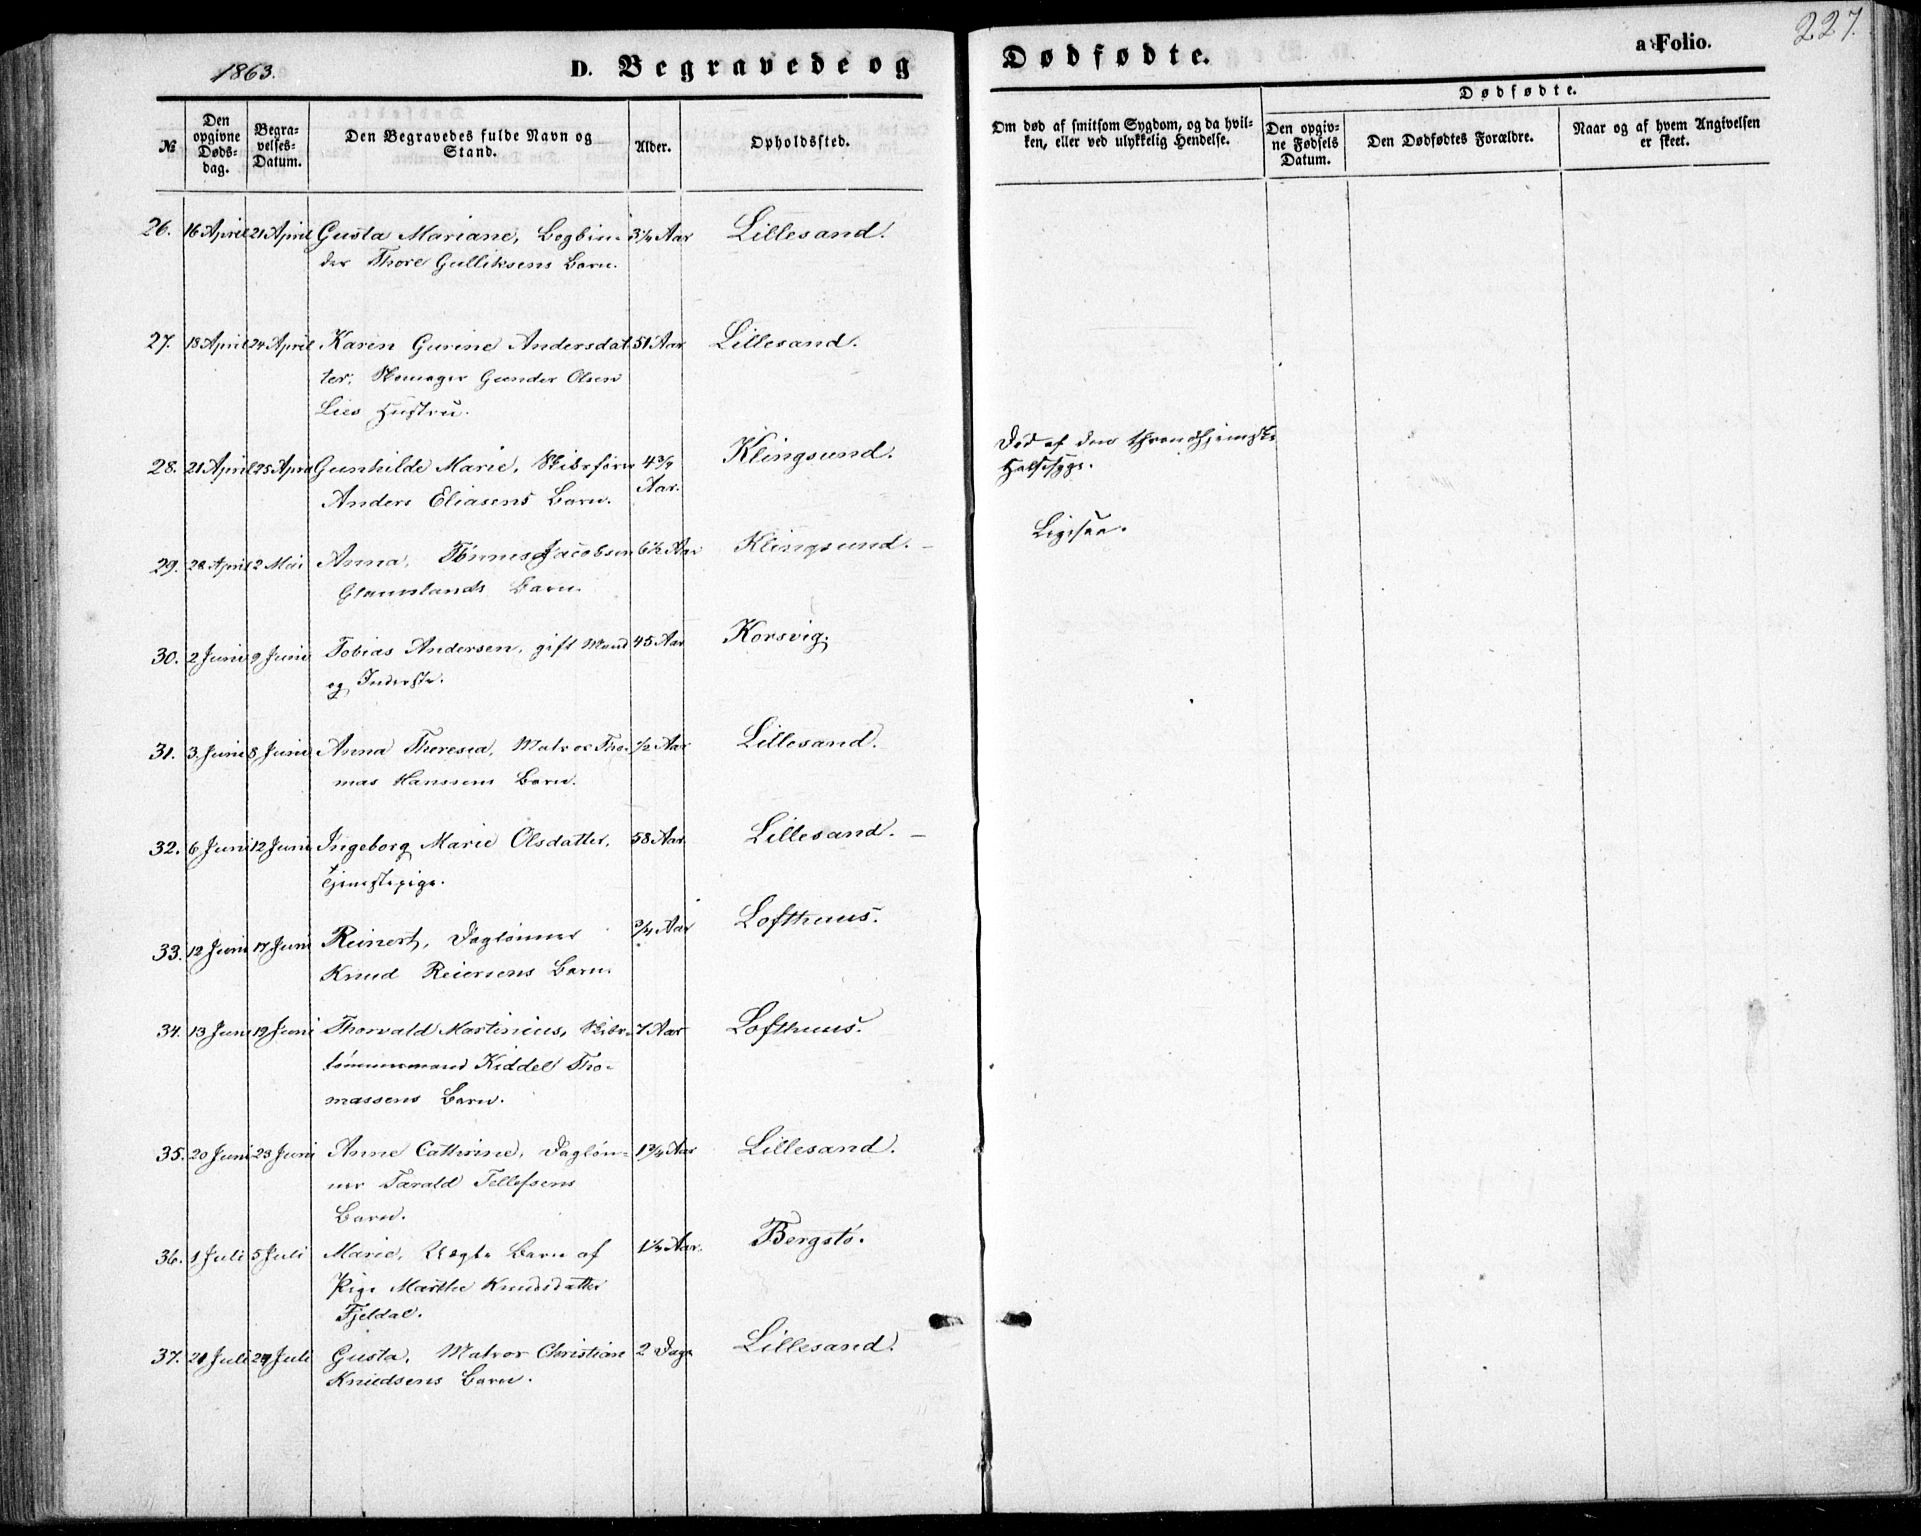 227.
1863.
D. Begravede og Dødfødte.
a Folio.
№
Den opgivne Døds-dag.
Begra-velses-Datum.
Den Begravedes fulde Navn og Stand.
Alder.
Opholdssted.
Om død af smitsom Sygdom, og da hvil-ken, eller ved ulykkelig Hendelse.
Dødfødte.
Den opgiv-ne Fødsels Datum.
Den Dødfødtes Forældre.
Naar og af hvem Angivelsen er skeet.
26. 16 April 21 April Gusta Mariane, Bogbin- 3¼ Aar Lillesand.
der Thore Gulliksens Barn.
27. 18 April 24 April Karen Gurine Andersdat 51 Aar Lillesand.
ter, Skomager Gunder Olsen
Lies Hustru.
28. 21 April 25 April Gunhilde Marie, Skibsfører 4¾ Aar. Klingsund. Død af den throndhjemske
Anders Eliasens Barn. Halssyge.
29. 28 April 2 Mai Anna, Tønnes Jacobsen 6½ Aar Klingsund. Ligesaa.
Glamslands Barn.
30. 2 Juni 9 Juni Tobias Andersen, gift Mand 45 Aar Korsvig.
og Inderste.
31. 3 Juni 8 Juni Anna Theresea, Matros Tho- ½ Aar Lillesand.
mas Hanssens Barn.
32. 6 Juni 12 Juni Ingeborg Marie Olsdatter, 58 Aar Lillesand.
Tjenestepige.
33. 12 Juni 17 Juni Reinert, Daglønner ¾ Aar Lofthuus.
Knud Reiersens Barn.
34. 13 Juni 19 Juni Thorvald Martinius, Skibs- 7 Aar Lofthuus.
tømmermand Kiddel Tho-
massens Barn.
35. 20 Juni 23 Juni Anne Cathrine, Dagløn- 1¾ Aar Lillesand.
ner Tarald Tellefsens
Barn.
36. 1 Juli 5 Juli Marie, Uægte Barn af 1¼ Aar. Bergstø.
Pige Marthe Knudsdatter
Fjeldal.
37. 21 Juli 24 Juli Gusta, Matros Christian 2 Dage Lillesand.
Knudsens Barn.